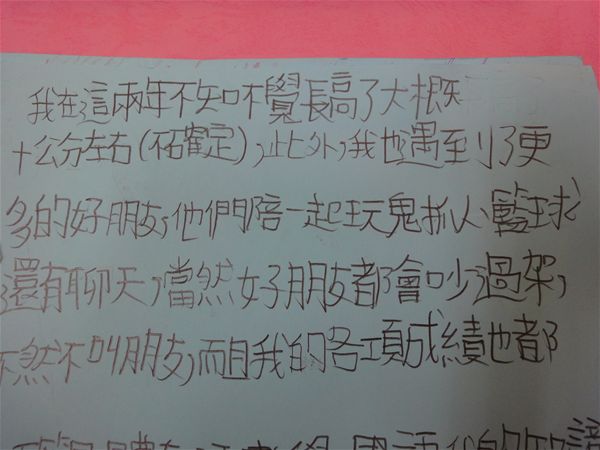 我在這兩年不知不覺長高了大概
十公分左右(不確定),此外,我也遇到了更
多的好朋友,他們陪一起玩鬼抓人、籃球
還有聊天,當然好朋友都會吵過架,
不然不叫朋友,而且我的各項成績也都